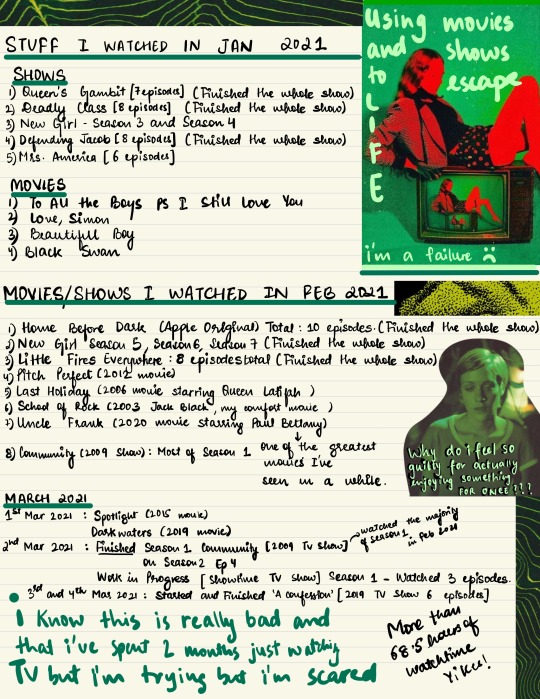 STUFF I WATCHED IN JAN 2021
SHOWS
1) Queen's Gambit [7 episodes] (Finished the whole show)
2) Deadly Class [8 episodes] (Finished the whole show)
3) New Girl - Season 3 and Season 4
4) Defending Jacob [8 episodes] (Finished the whole show)
5) Mrs. America [6 episodes]
MOVIES
1) To All the Boys PS I Still Love You
2) Love, Simon
3) Beautiful Boy
4) Black Swan
Using movies
and shows
to escape
LIFE
i'm a failure
MOVIES/SHOWS I WATCHED IN FEB 2021
1) Home Before Dark (Apple Original) Total : 10 episodes. (Finished the whole show)
2) New Girl Season 5, Season 6, Season 7 (Finished the whole show)
3) Little Fires Everywhere : 8 episodes total (Finished the whole show)
4) Pitch Perfect (2012 movie)
5) Last Holiday (2006 movie starring Queen Latifah)
6) School of Rock (2003 Jack Black, my comfort movie)
7) Uncle Frank (2020 movie starring Paul Bettany)
one of the greatest
movies I've
seen in a while.
8) Community (2009 show) : Most of Season 1
Why do i feel so
guilty for actually
enjoying something
FOR ONCE???
MARCH 2021
1st Mar 2021 : Spotlight (2015 movie)
Dark waters (2019 movie)
2nd Mar 2021 : Finished Season 1 Community [2009 TV show]
watched the majority
of season 1
in Feb 2021
on Season 2 Ep 4
Work in Progress [Showtime TV show] Season 1 - Watched 3 episodes.
3rd and 4th Mar 2021 : Started and Finished 'A confession' [2019 TV show 6 episodes]
I know this is really bad and
that i've spent 2 months just watching
TV but i'm trying but i'm scared
More than
68.5 hours of
watchtime
Yikes!